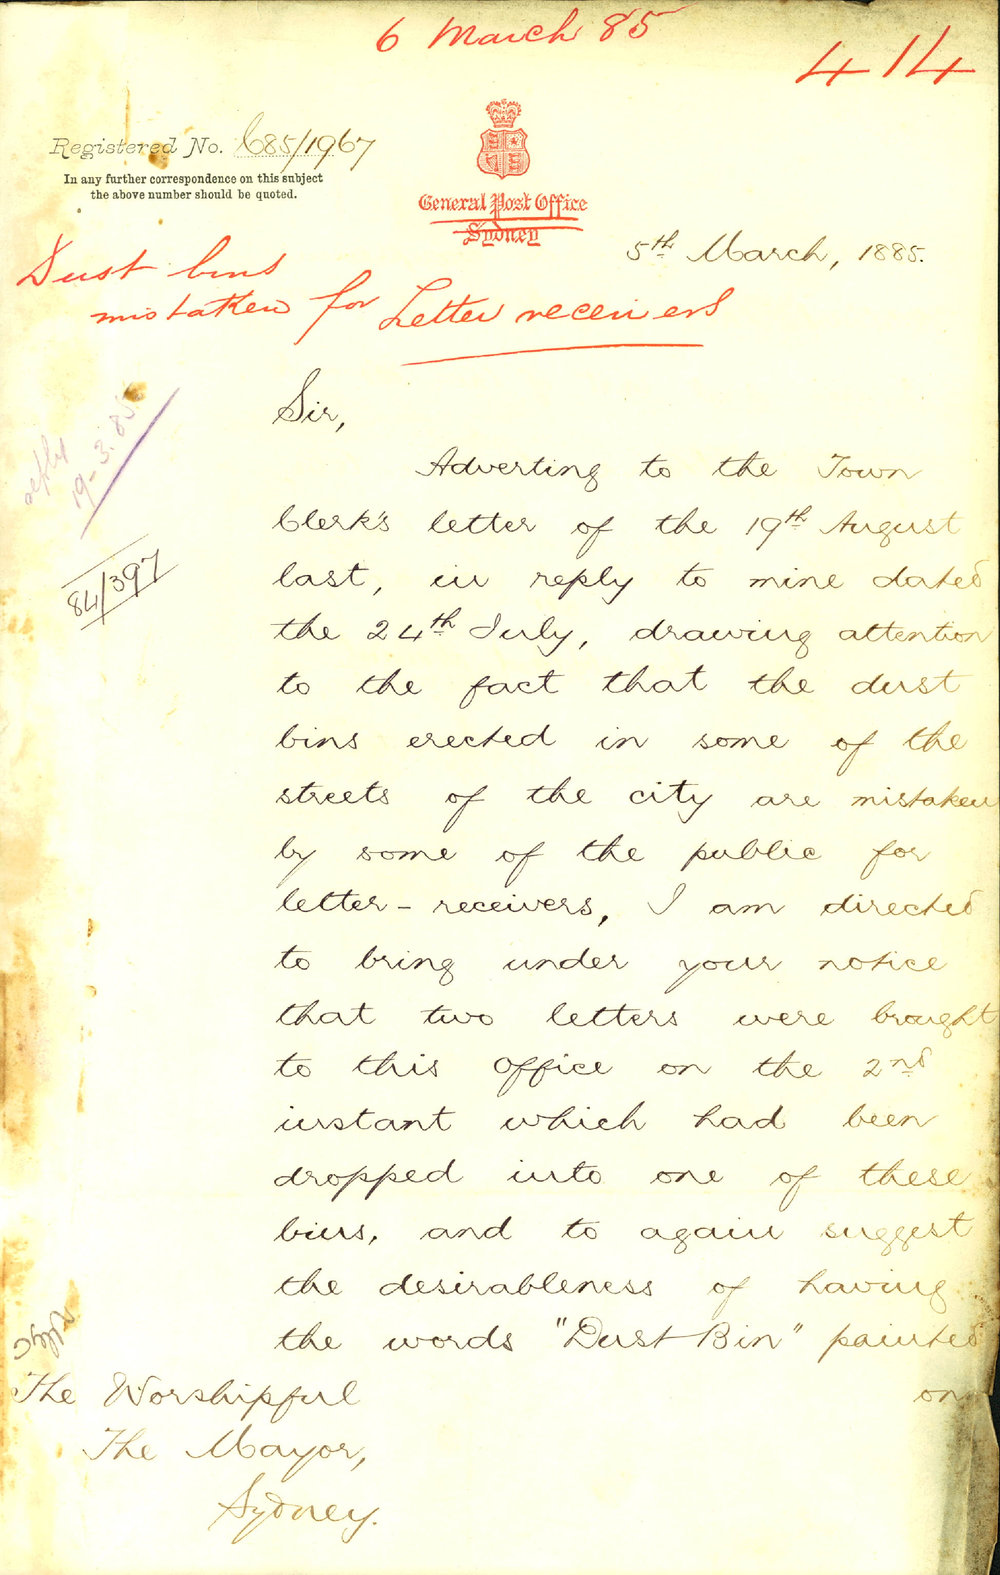 6 March 85
414
Registered No. C85/1967
In any further correspondence on this subject
the above number should be quoted.
General Post Office
Sydney
5th March, 1885.
Dust bins
mistaken for Letter receivers
reply
19-3.85
84/397
Sir,
Adverting to the Town
Clerk's letter of the 19th August
last, in reply to mine dated
the 24th July, drawing attention
to the fact that the dust
bins erected in some of the
streets of the city are mistaken
by some of the public for
letter-receivers, I am directed
to bring under your notice
that two letters were brought
to this Office on the 2nd
instant which had been
dropped into one of these
bins, and to again suggest
the desirableness of having
the words "Dust Bin" painted
on
The Worshipful
The Mayor,
Sydney.